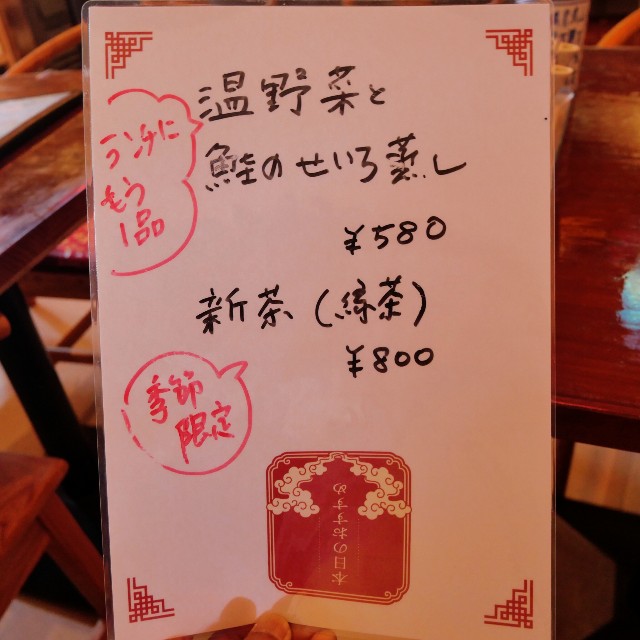 温野菜と
鮭のせいろ蒸し
¥580
ランチに
もう
1品
新茶(緑茶)
¥800
季節
限定
本日のおすすめ